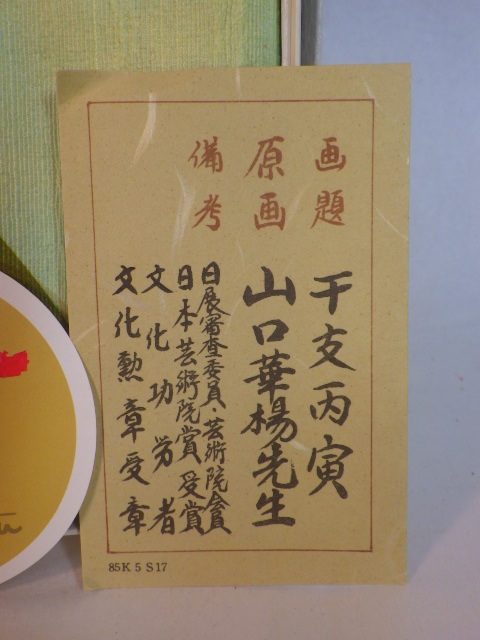 画題 干支丙寅
原画 山口華楊先生
備考 日展審査委員・芸術院会員
日本芸術院賞受賞
文化功労者
文化勲章受章
85K 5 S17